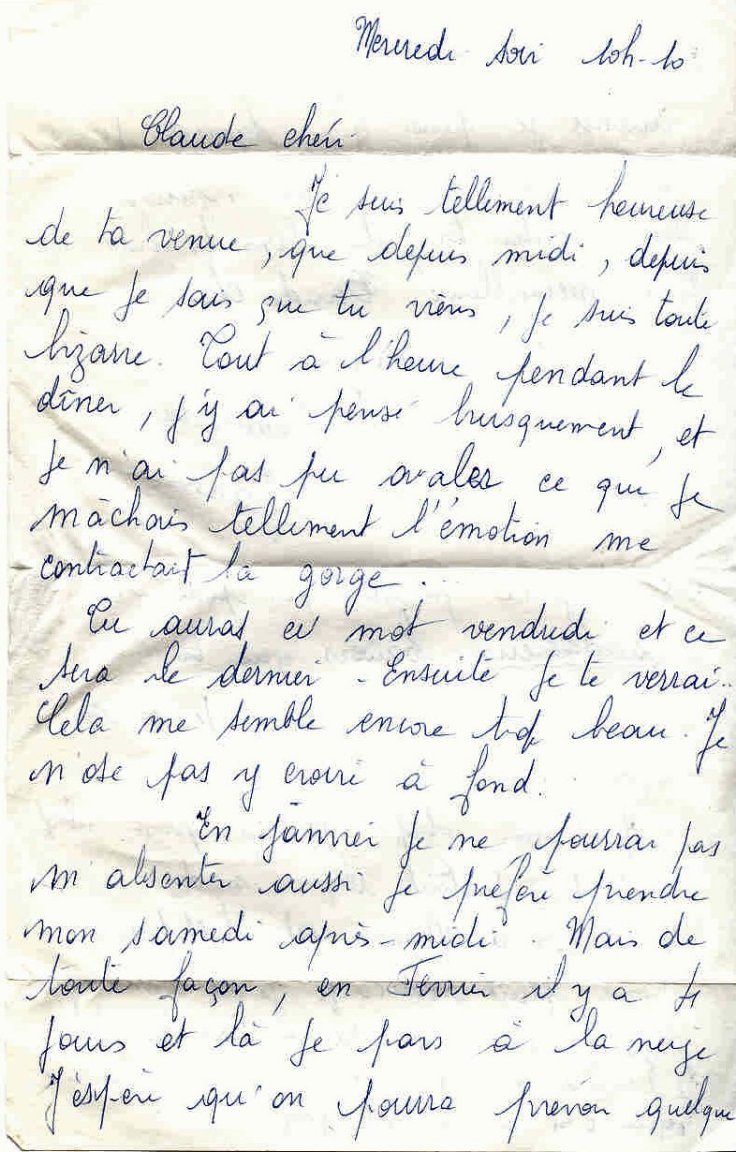 Mercredi soir 10h-10
Claude chéri
Je suis tellement heureuse
de ta venue, que depuis midi, depuis
que je sais que tu viens, je suis toute
bizarre. Tout à l'heure pendant le
dîner, j'y ai pensé brusquement, et
je n'ai pas pu avaler ce que je
mâchais tellement l'émotion me
contractait la gorge...
Tu auras ce mot vendredi et ce
sera le dernier - Ensuite je te verrai..
Cela me semble encore trop beau. Je
n'ose pas y croire à fond.
En janvier je ne pourrai pas
m'absenter aussi je préfère prendre
mon samedi après-midi. Mais de
toute façon, en Février il y a
jours et là je pars à la neige
J'espère qu'on pourra prévoir quelque